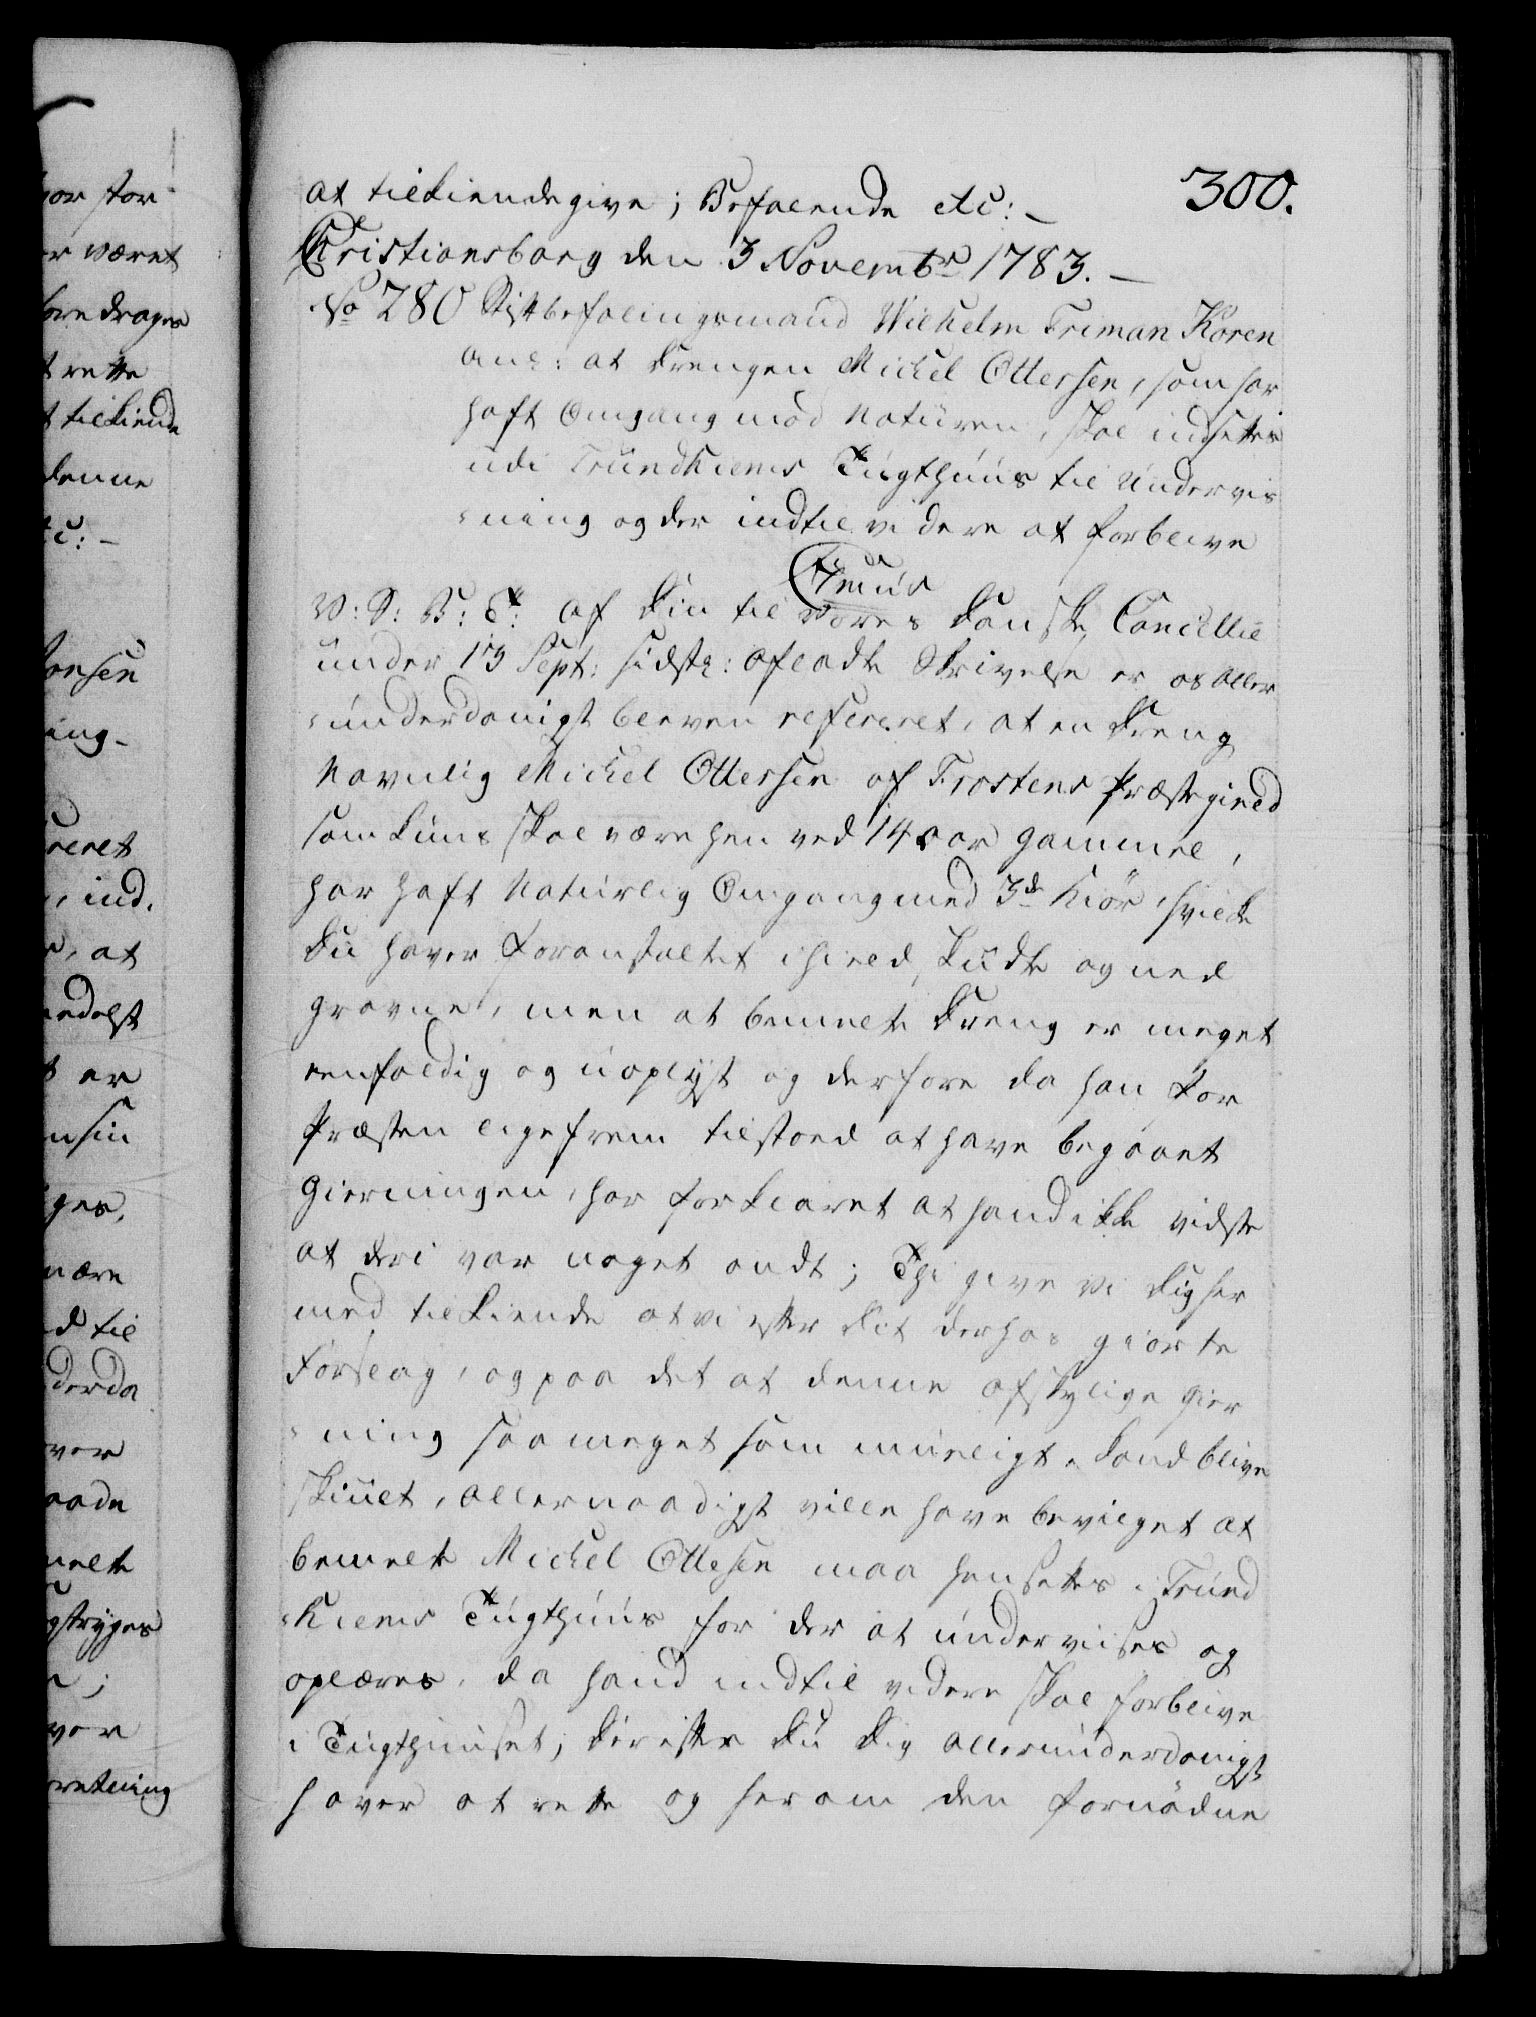 300.
at tilkiendegive; Befalende etc: –
Christiansborg den 3 Novembr 1783. –
No 280 Stiftbefalingsmand Wilhelm Friman Koren
anl: at Drengen Michel Ottersen, som har
haft Omgang mod Naturen, skal indsettes
udi Trundhiems Tugthuus til Undervis
=ning og der indtil videre at forblive
C7mus
V: S: B: T: Af Din til Vores Danske Cancellie
under 13 Sept: sidstl: afladte Skrivelse er os Aller
=underdanigst bleven refereret, at en Dreng
Navnlig Michel Ottersen af Frostens Præstegield
som kuns skal være hen ved 14 aar gammel,
har haft Naturlig Omgang med 3de Kiör, hvilke
Du haver foranstaltet ihield skudte og ned
gravne, men at bemelte Dreng er meget
eenfoldig og uoplyst og derfore da han for
Præsten ligefrem tilstoed at have begaaet
Gierningen, har forklaret at hand ikke vidste
at deri var noget ondt; Thi give vi Dig her
med tilkiende at vi efter Dit derhos giorte
Forslag, og paa det at denne afskylige Gier
=ning saa meget som mueligt, kand blive
skiult, allernaadigst ville have bevilget at
bemelte Michel Ottesen maa hensettes i Trund
=hiems Tugthuus for der at underviises og
oplæres, da hand indtil videre skal forblive
i Tugthuuset; Derefter Du Dig allerunderdanigst
haver at rette og herom den fornödne